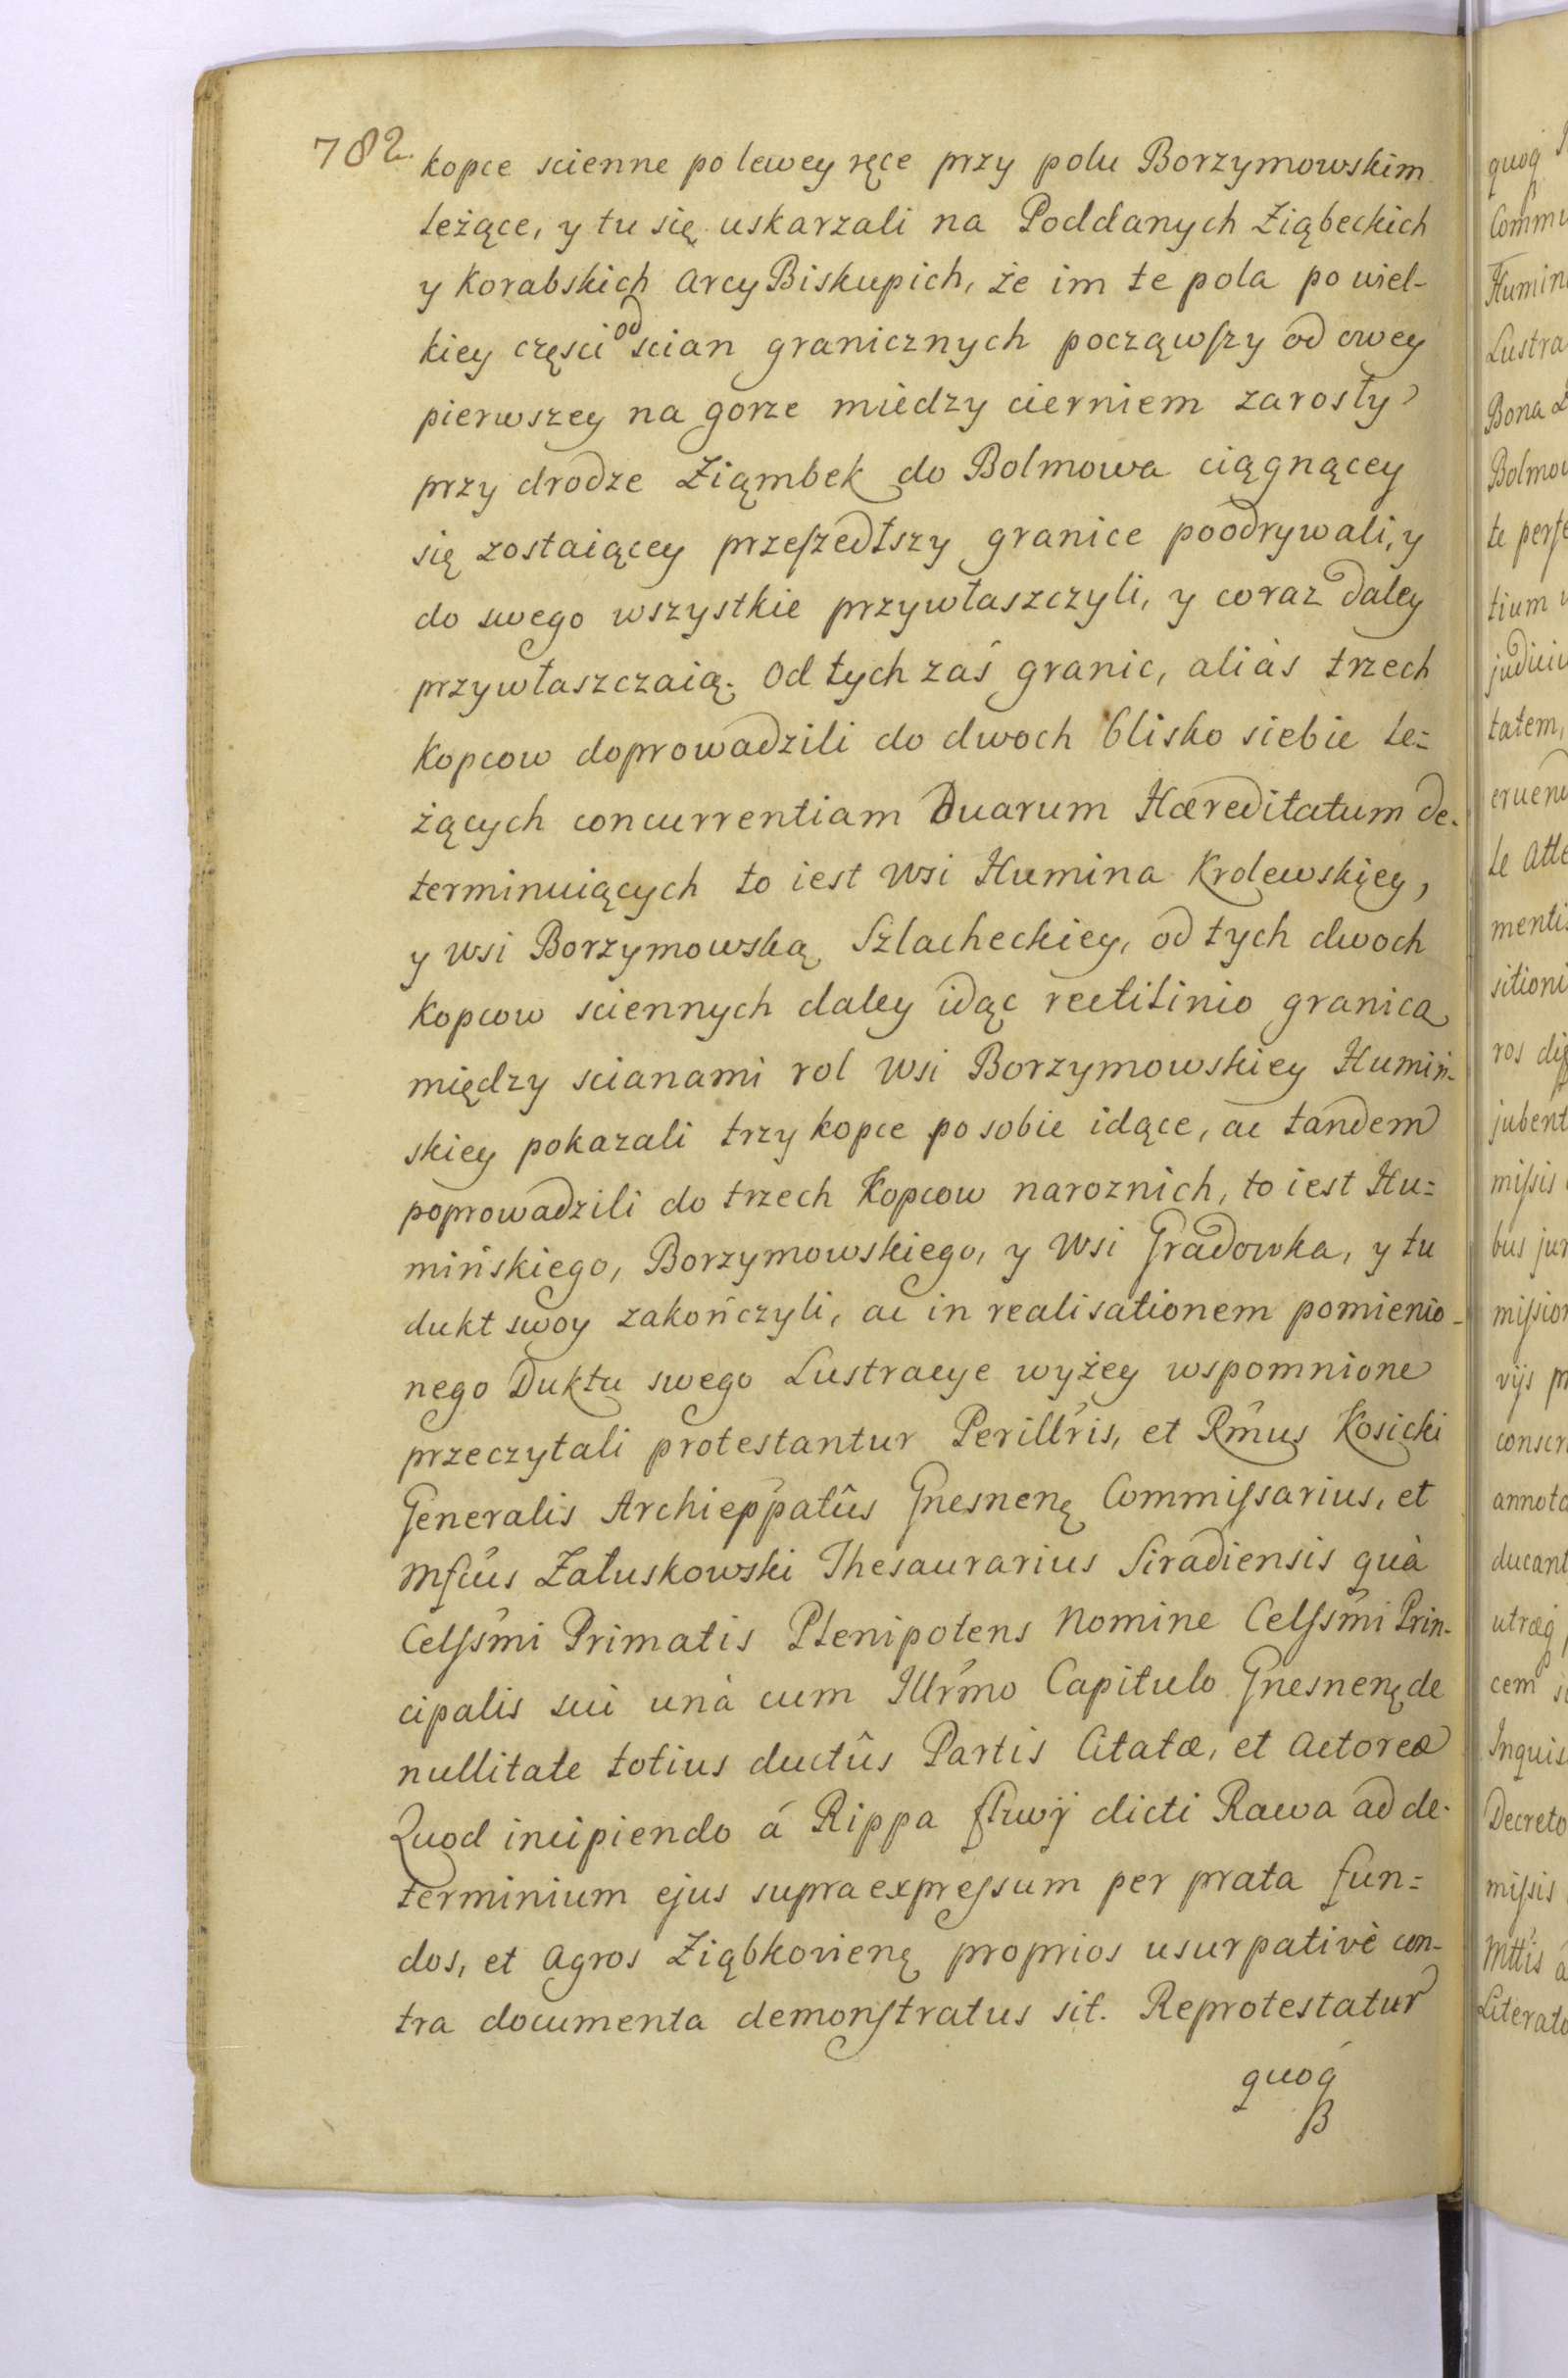 782.
kopce scienne po lewey ręce przy polu Borzymowskim
leżące, y tu się uskarzali na Poddanych Ziąbeckich
y Korabskich ArcyBiskupich, że im te pola po wiel-
kiey częsci od scian granicznych począwſzy od owey
pierwszey na gorze miedzy cierniem zarosły
przy drodze Ziąmbek do Bolmowa ciągnącey
się zostaiącey przeſzedłszy granice poodrywali, y
do swego wszystkie przywłaszczyli, y coraz daley
przywłaszczaią. Od tych zaś granic, aliàs trzech
Kopcow doprowadzili do dwoch blisko siebie le=
żących concurrentiam Duarum Hæreditatum de-
terminuiących to iest Wsi Humina Krolewskiey,
y Wsi Borzymowską Szlacheckiey, od tych dwoch
Kopcow sciennych daley idąc rectilinio granica
między scianami rol Wsi Borzymowskiey Humiń-
skiey pokazali trzy kopce po sobie idące, ac tandem
poprowadzili do trzech Kopcow naroznich, to iest Hu=
mińskiego, Borzymowskiego, y Wsi Gradowka, y tu
dukt swoy zakończyli, ac in realisationem pomienio-
nego Duktu swego Lustracye wyżey wspomnione
przeczytali protestantur Perillris, et Rmus Kosicki
Generalis Archieppatûs Gnesnenę Commiſsarius, et
Mfcus Załuskowski Thesaurarius Siradiensis quà
Celſsmi Primatis Plenipotens Nomine Celſsmi Prin-
cipalis sui unà cum Illrmo Capitulo Gnesnenę de
nullitate totius ductûs Partis Citatæ, et Actoreæ
Quod incipiendo á Rippa fluvij dicti Rawa ad de-
terminium ejus supraexpreſsum per prata fun=
dos, et Agros Ziąbkovienę proprios usurpativè con-
tra documenta demonſtratus sit. Reprotestatur
quoq
quoq
Commu
Humin
Lustra
Bona
Bolmow
te perſe
tium
judiciu
tatem,
eruend
le Atte
mentis
sitioni
ros diſ
jubent
miſsis
bus jur
miſsion
vijs pr
conscr
annota
ducant
utræq
cem
Inquis
Decreto
miſsis
Mttis a
Literato